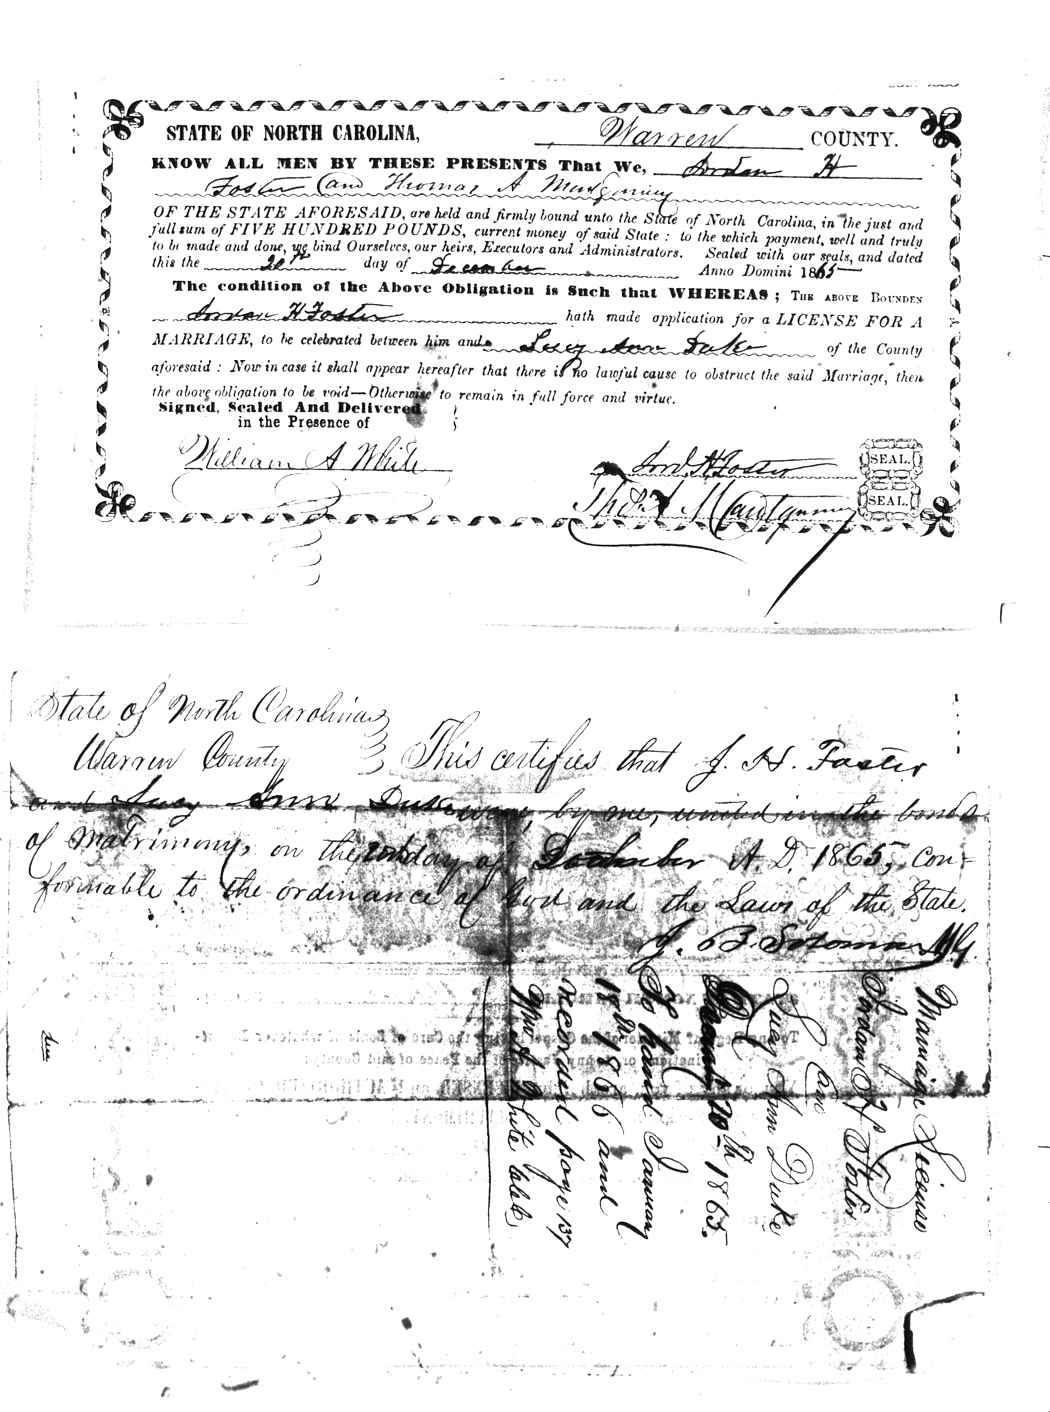 STATE OF NORTH CAROLINA, Warren COUNTY.
KNOW ALL MEN BY THESE PRESENTS That We, Jordan H
Foster and Thomas A Montgomery
OF THE STATE AFORESAID, are held and firmly bound unto the State of North Carolina, in the just and
full sum of FIVE HUNDRED POUNDS, current money of said State : to the which payment, well and truly
to be made and done, we bind Ourselves, our heirs, Executors and Administrators. Sealed with our seals, and dated
this the 20th day of December Anno Domini 1865
The condition of the Above Obligation is Such that WHEREAS ; THE ABOVE BOUNDEN
Jordan H Foster hath made application for a LICENSE FOR A
MARRIAGE, to be celebrated between him and Lucy Ann Duke of the County
aforesaid : Now in case it shall appear hereafter that there is no lawful cause to obstruct the said Marriage, then
the above obligation to be void—Otherwise to remain in full force and virtue.
Signed, Sealed And Delivered
in the Presence of
William A White
Jord. H. Foster SEAL.
Thos. A Montgomery SEAL.
State of North Carolina
Warren County This certifies that J. H. Foster
and Lucy Ann Duke were, by me, united in the bonds
of Matrimony, on the 20th day of December A.D. 1865, con-
formable to the ordinance of God and the Laws of the State.
J. B. Solomon M.G.
Marriage License
Jordan H Foster
&
Lucy Ann Duke
20th 1865.
To hand January
18th 1866 and
recorded page 137
Wm A White Clerk